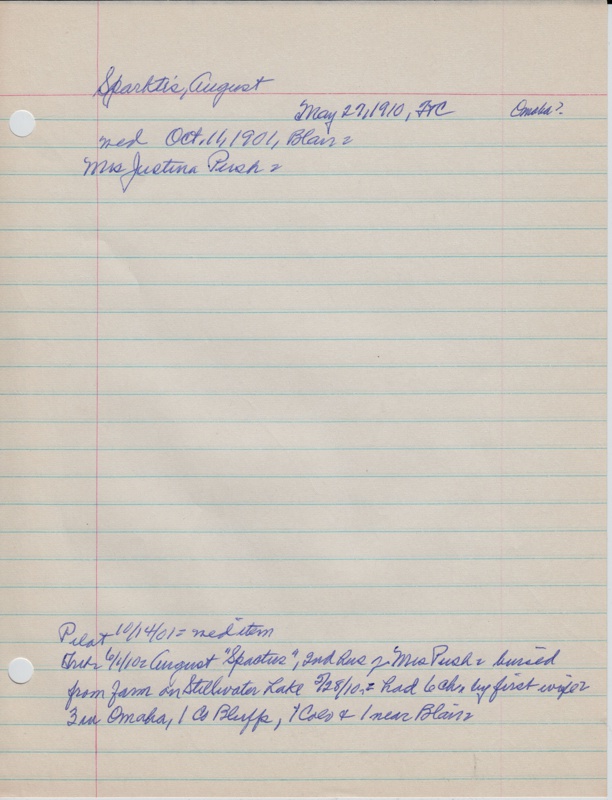 Sparktis, August
May 27, 1910, FtC Omaha?
med Oct. 11, 1901, Blair =
Mrs Justina Push =
Pilot 10/14/01 = med item
Trib = 6/1/10 = August "Spactus", 2nd hus of Mrs Push = buried
from farm on Stillwater Lake 5/28/10. = had 6 ch. by first wife =
3 in Omaha, 1 Co Bluffs, 1 Colo & 1 near Blair =